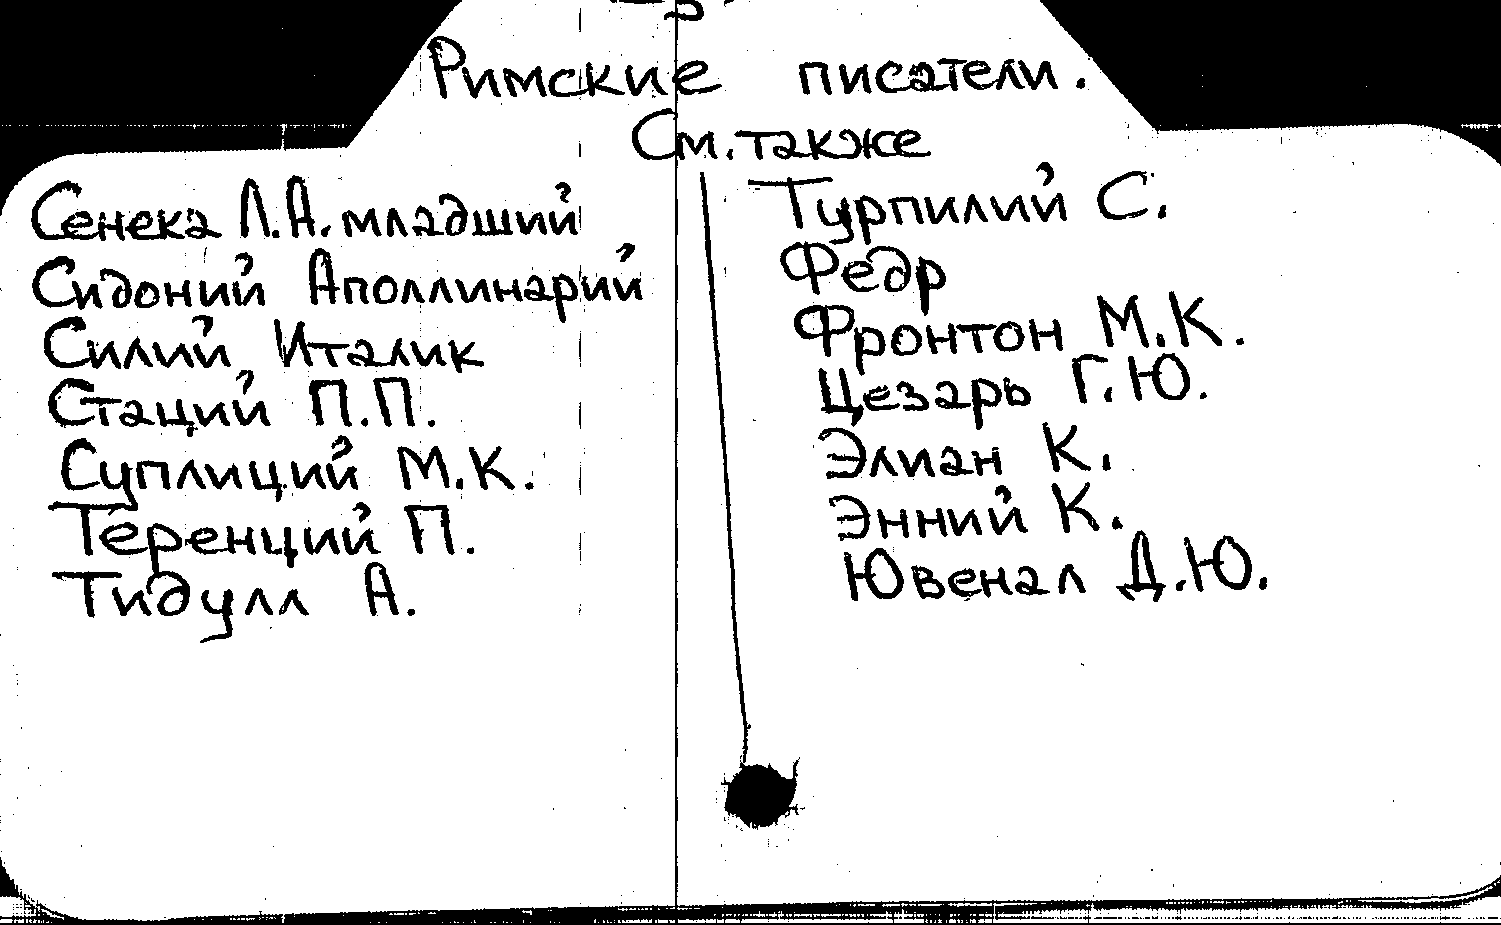 Римские писатели.
См. также
Сенека Л.А. младший
Сидоний Аполлинарий
Силий Италик
Стаций П.П.
Суплиций М.К.
Теренций П.
Тидулл А.
Турпилий С.
Федр
Фронтон М.К.
Цезарь Г.Ю.
Элиан К.
Энний К.
Ювенал Д.Ю.